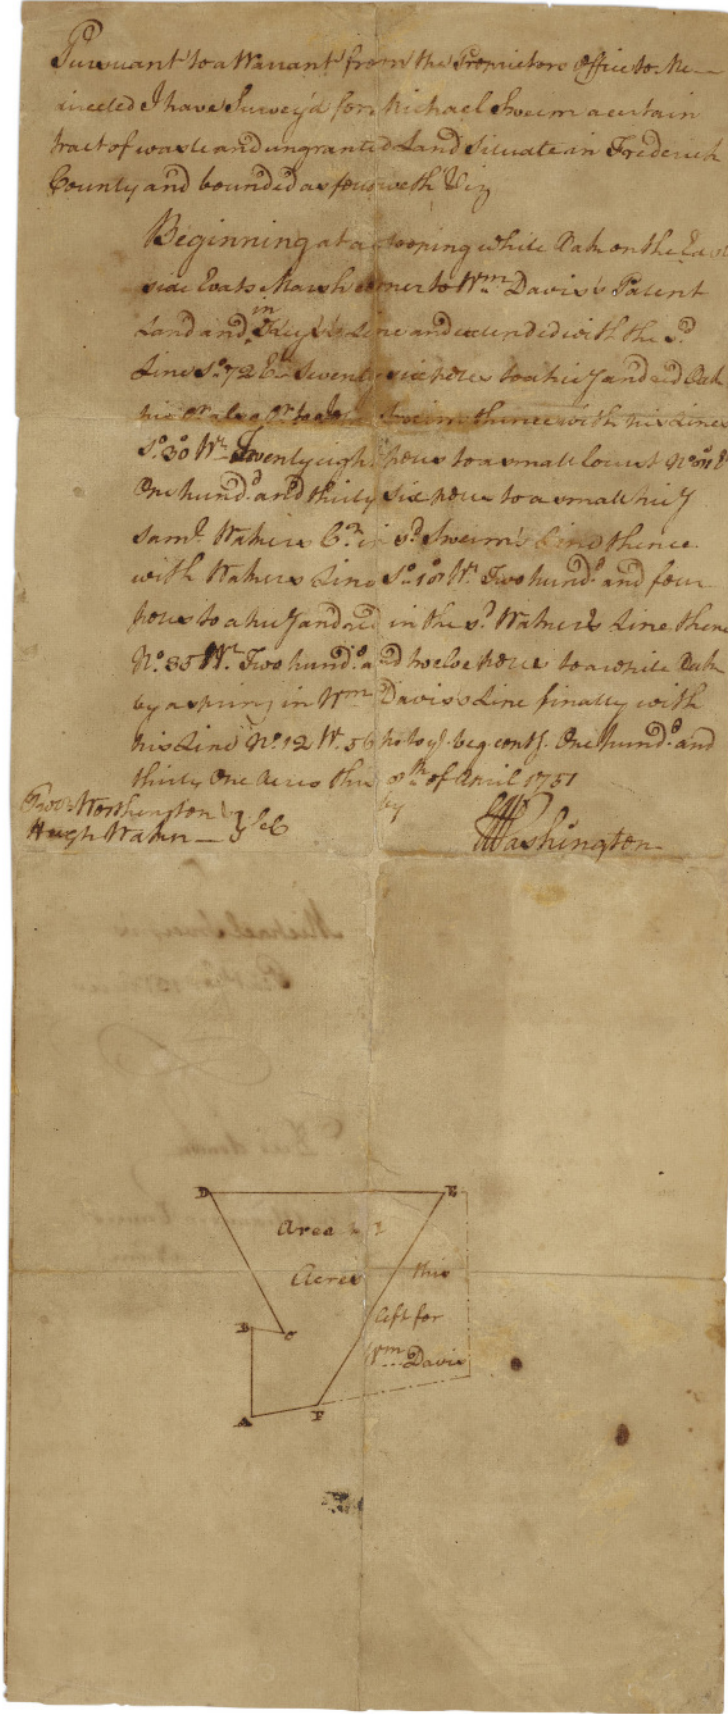 Pursuant to a Warrant from the Proprietors Office to Me
directed I have Survey'd for Michael Sweim a certain
tract of waste and ungranted Land Situate in Frederick
County and bounded as followeth Viz
Beginning at a white Oak on the East
side Evats Marsh corner to Wm. Davis's Patent
in
Land and Line and extended with the sd
Line So. 72 Et. Seventy six poles to a hicy. and red Oak
Sweim thence with his Lines
So. 30 Wt. Twenty eight poles to a small locust No.
One hund.d and thirty six poles to a small hicy
Saml. Walkers Cr. in sd. Sweim's Line thence
with Walkers Line So. 18 Wt. Two hund.d and four
poles to a hicy and red in the sd. Walker's Line thence
No. 35 Wt. Two hund.d and twelve poles to a white Oak
by a spring in Wm Davis's Line finally with
his Line No. 12 W. 56 po. to ye. beg. contg. One hund.d and
thirty One Acres this 8th of April 1751
by
Worthington
Hugh Walker
GWashington
D
E
Area
Acres
this
left for
Wm. Davis
B
C
A
F